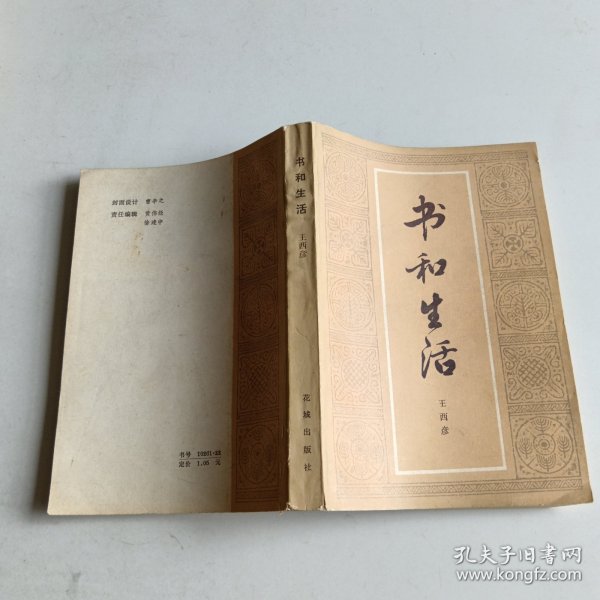 封面设计 曹辛之
责任编辑 黄伟经
徐建中
书号 10261·23
定价 1.05 元
书和生活
王西彦
花城出版社
书和生活
王西彦
孔夫子旧书网
www.kongfz.com